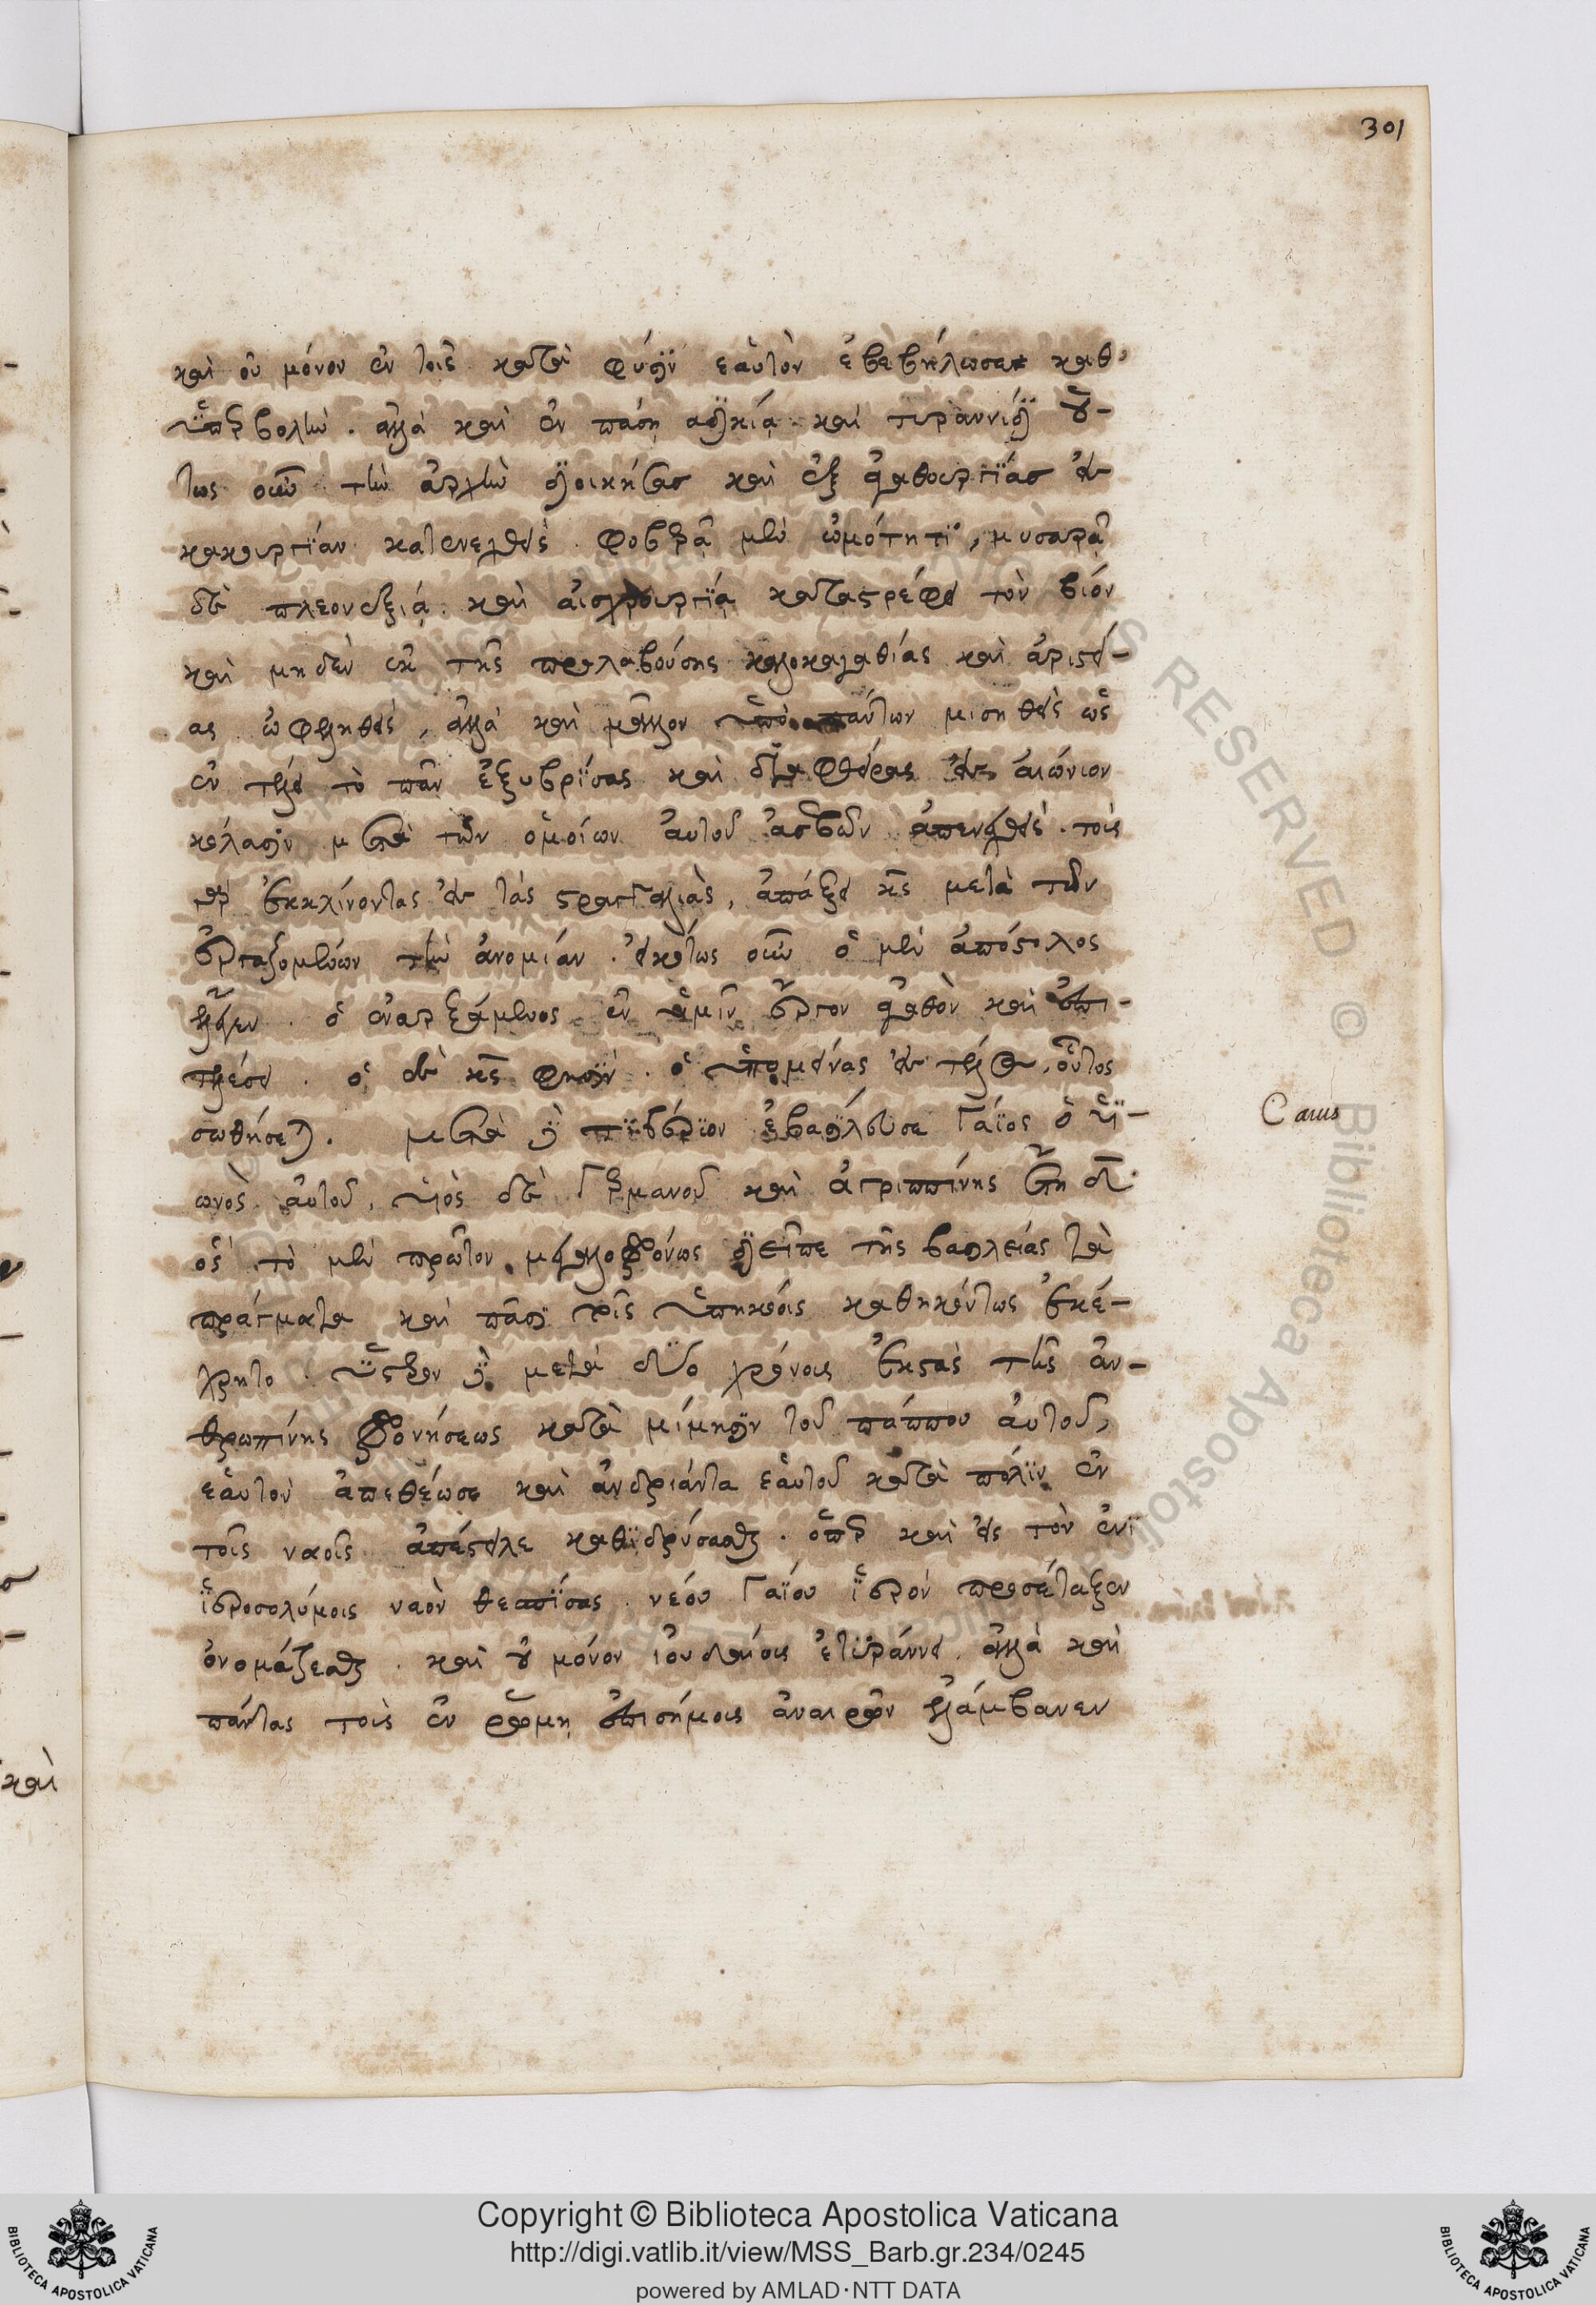 301
καὶ οὐ μόνον ἐν τοῖς κατὰ φύσϊν ἑαὐτὸν ἐβεβήλωσε καθ'
ὑπερβολὴν. ἀλλὰ καὶ ἐν πάσῃ αδϊκίᾳ καὶ τυραννίδϊ οὕ-
τως οὖν τὴν ἀρχὴν δϊοικήσας καὶ ἐξ ἀγαθουργΐας εἰς
κακουργΐαν κατενεχθεὶς. φοβερᾷ μὲν ὠμότητϊ, μυσαρᾷ
δὲ πλεονεξιᾴ. καὶ αἰσχρουργΐᾳ καταστρέφει τὸν βιόν
καὶ μηδὲν ἐκ τῆς προλαβούσης καλοκαγαθίας καὶ ἀριστεί-
ας ὠφεληθεὶς, ἀλλὰ καὶ μᾶλλον ὑπὸ πάντων μισηθεὶς ὡς
ἐν τέλει τὸ πᾶν ἐξυβρΐσας καὶ διαφθείρας εἰς αἰώνιον
κόλασϊν μετὰ τῶν ὁμοίων αὐτοῦ ἀσεβῶν ἀπενεχθεὶς. τοὺς
γὰρ ἐκκλίνοντας εἰς τὰς στραγγαλιὰς, ἀπάξει κς μετὰ τῶν
ἐργαζομένων τὴν ἀνομιάν. εἰκότως οὖν ὁ μὲν ἀπόστολος
ἔλεγεν. ὁ ἐναρξάμενος ἐν ὑμῖν ἔργον ἀγαθὸν καὶ ἐπι-
τελέσει. ὁ δὲ κς φησϊν. ὁ ὑπομείνας εἰς τέλος, οὗτος
σωθήσεται. μετὰ δὲ τϊβέρϊον ἐβασΐλευσε Γάϊος ὁ ὑϊ-
Caius
ωνὸς αὐτοῦ, υἱὸς δὲ Γερμανοῦ καὶ ἀγριππίνης ἔτη δ.
ὃς τὸ μὲν πρῶτον μεγαλοφρόνως δϊεῖπε τῆς βασιλείας τὰ
πράγματα καὶ πᾶσϊ τοῖς ὑπηκόοις καθηκόντως ἐκέ-
χρητο. ὕστερον δὲ μετὰ δύο χρόνους ἐκστὰς τῆς ἀν-
θρωπίνης φρονήσεως κατὰ μίμησϊν τοῦ πάππου αὐτοῦ,
ἑαὐτὸν ἀπεθέωσε καὶ ἀνδριάντα ἑαὐτοῦ κατὰ πόλϊν ἐν
τοῖς ναοῖς ἀπέστειλε καθϊδρύσασθαι. ὅπερ καὶ εἰς τὸν ἐν
ϊεροσολύμοις ναὸν θεσπΐσας. νέου Γαΐου ϊερὸν προσέταξεν
ὀνομάζεσθαι. καὶ οὐ μόνον ἰουδαίους ἐτυράννει. ἀλλὰ καὶ
πάντας τοὺς ἐν ῥώμῃ ἐπισήμους ἀναιρῶν ἐλάμβανεν
καὶ
Copyright © Biblioteca Apostolica Vaticana
http://digi.vatlib.it/view/MSS_Barb.gr.234/0245
powered by AMLAD·NTT DATA
BIBLIOTECA APOSTOLICA VATICANA
BIBLIOTECA APOSTOLICA VATICANA